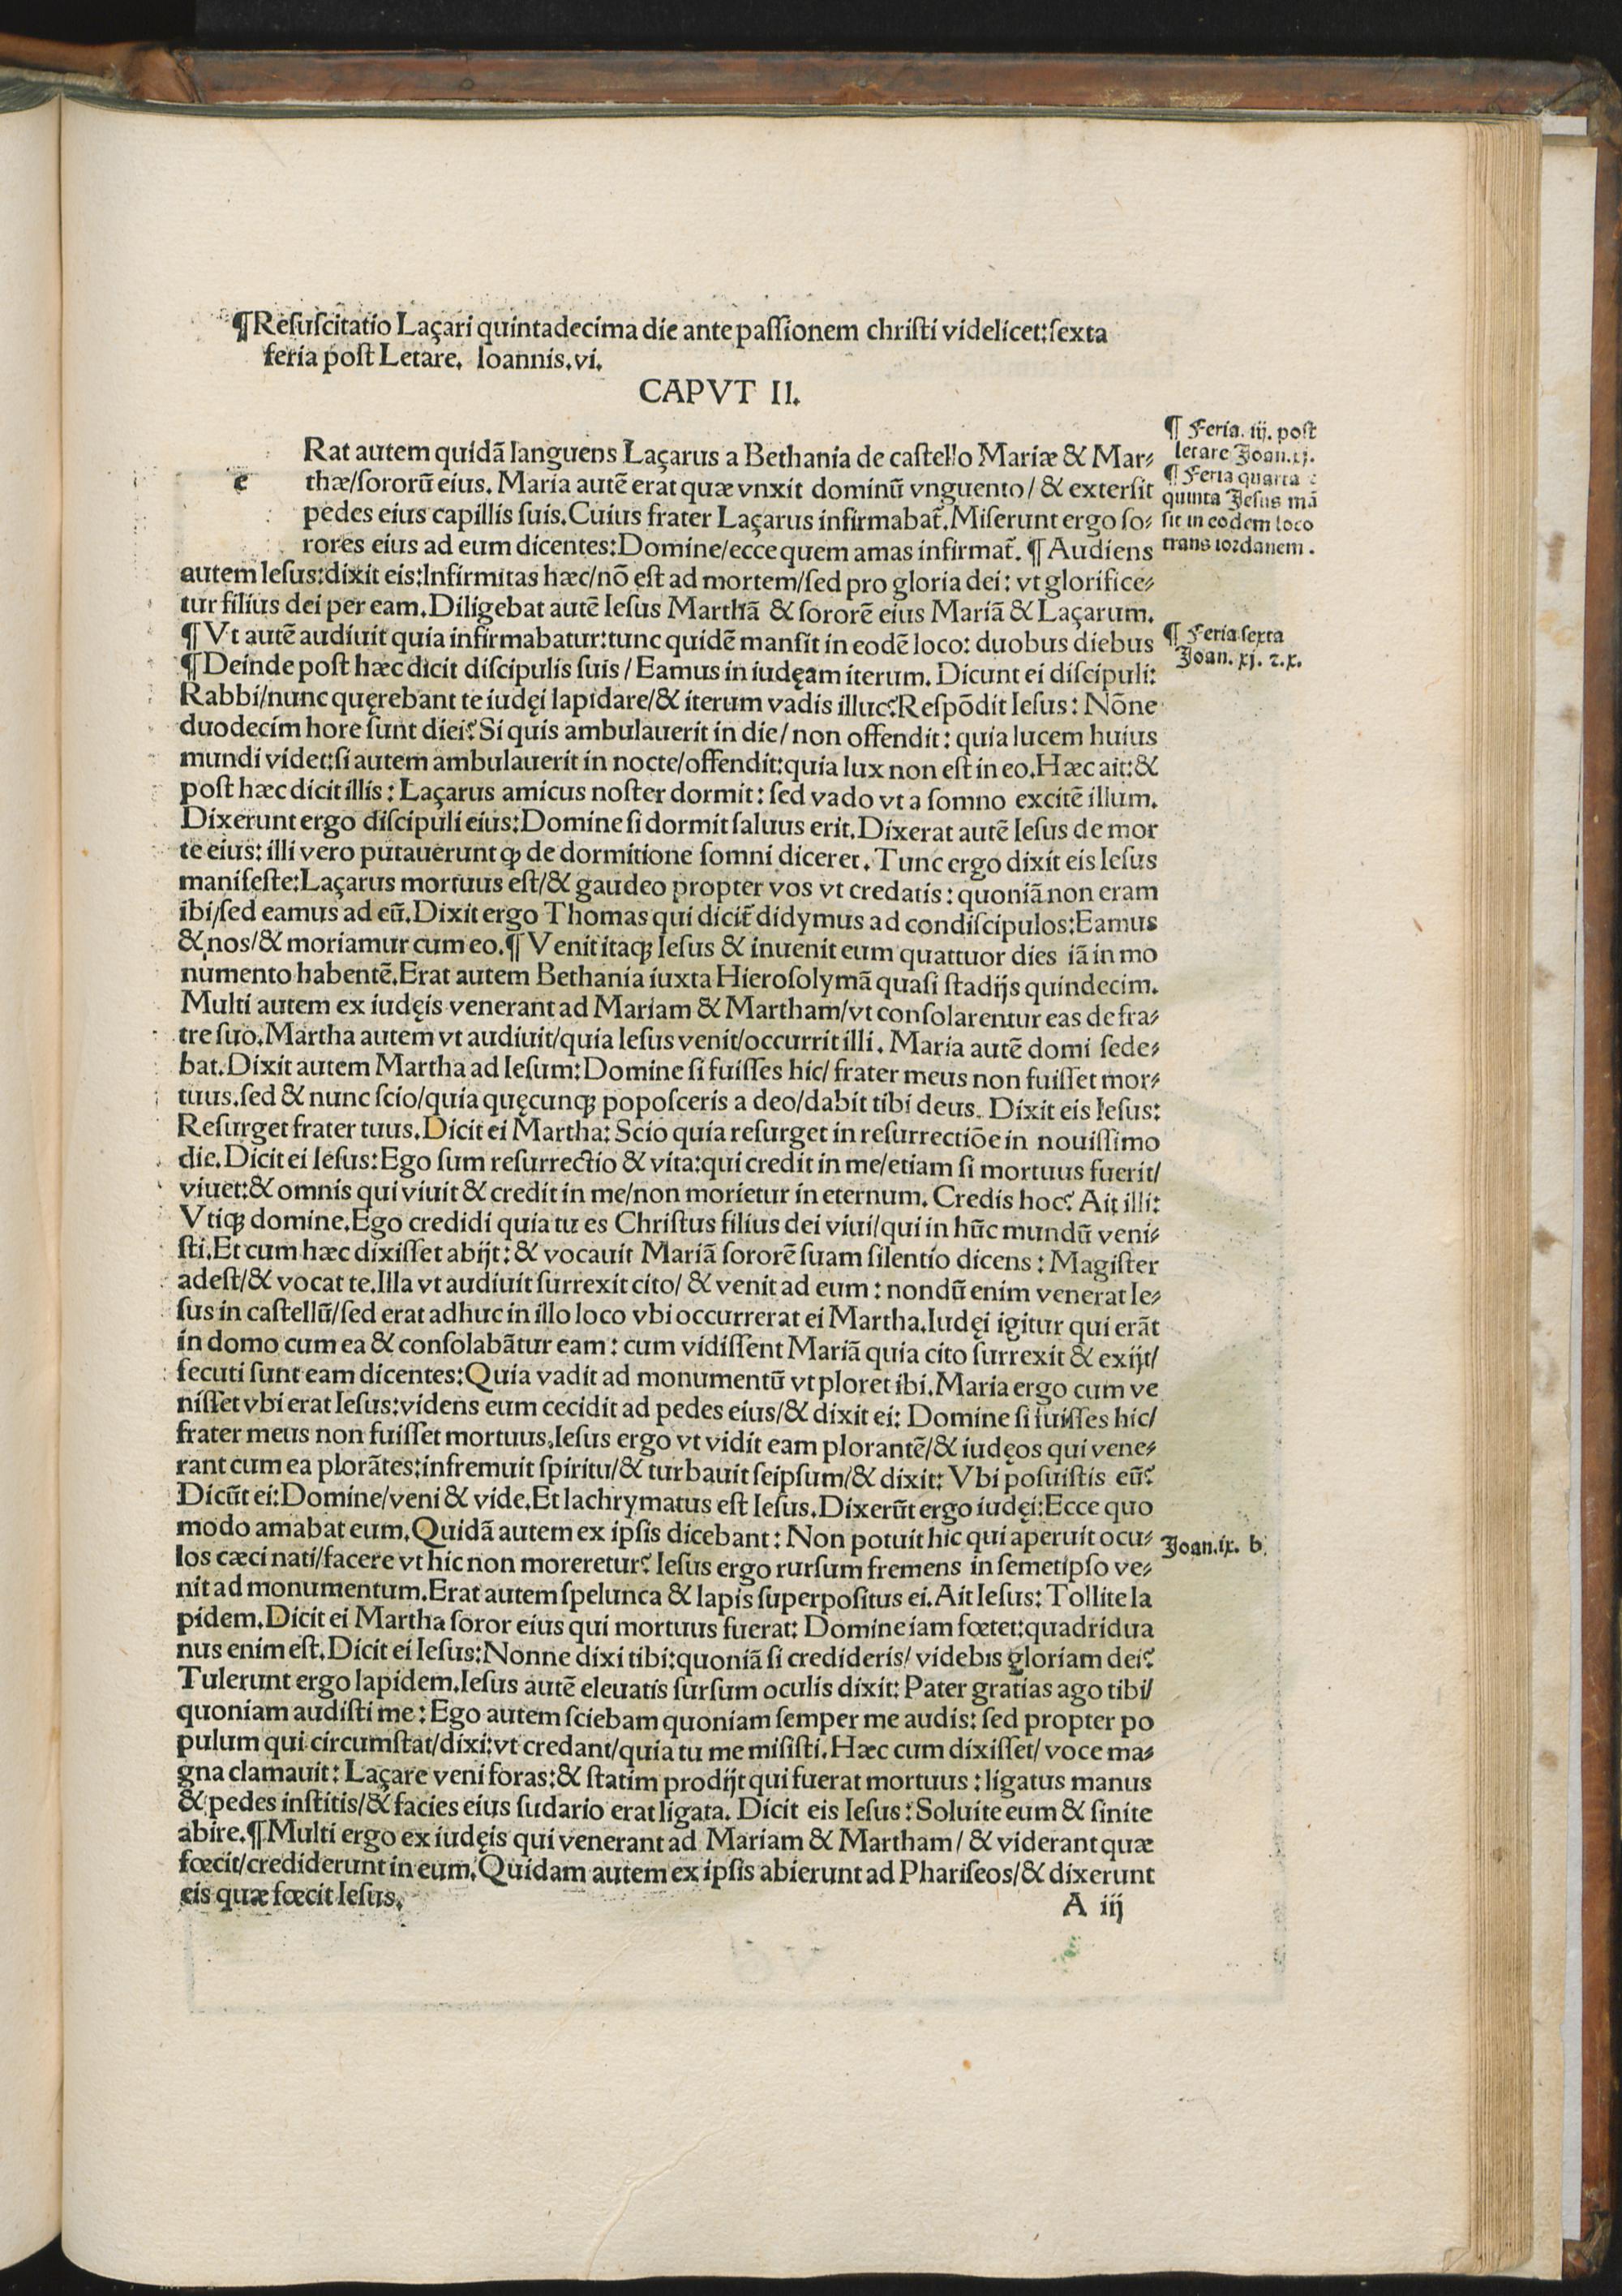 ¶Resuſcitatio Laçari quintadecima die ante paſſionem chriſti videlicet:ſexta
feria poſt Letare. Ioannis.vi.
CAPVT II.
¶ Feria. iij. poſt
letare Joan.xj.
¶ Feria quarta ⁊
quinta Jeſus mã
ſit in eodem loco
trans iordanem.
e
Rat autem quidã languens Laçarus a Bethania de caſtello Mariæ & Mar-
thæ/ſororũ eius. Maria autẽ erat quæ vnxit dominũ vnguento/ & exterſit
pedes eius capillis ſuis.Cuius frater Laçarus infirmabat̃.Miſerunt ergo ſo-
rores eius ad eum dicentes:Domine/ecce quem amas infirmat̃. ¶Audiens
autem Ieſus:dixit eis:Infirmitas hæc/nõ eſt ad mortem/ſed pro gloria dei: vt glorifice-
tur filius dei per eam.Diligebat autẽ Ieſus Marthã & ſororẽ eius Mariã & Laçarum.
¶Vt autẽ audiuit quia infirmabatur:tunc quidẽ manſit in eodẽ loco: duobus diebus
¶Deinde poſt hæc dicit diſcipulis ſuis / Eamus in iudęam iterum. Dicunt ei diſcipuli:
¶ Feria ſexta
Joan. xj. ⁊.x.
Rabbi/nunc quęrebant te iudęi lapidare/& iterum vadis illuc?Reſpõdit Ieſus: Nõne
duodecim hore ſunt diei?Si quis ambulauerit in die/ non offendit: quia lucem huius
mundi videt:ſi autem ambulauerit in nocte/offendit:quia lux non eſt in eo.Hæc ait:&
poſt hæc dicit illis: Laçarus amicus noſter dormit: ſed vado vt a ſomno excitẽ illum.
Dixerunt ergo diſcipuli eius:Domine ſi dormit ſaluus erit.Dixerat autẽ Ieſus de mor
te eius: illi vero putauerunt ꝙ de dormitione ſomni diceret. Tunc ergo dixit eis Ieſus
manifeſte:Laçarus mortuus eſt/& gaudeo propter vos vt credatis: quoniã non eram
ibi/ſed eamus ad eũ.Dixit ergo Thomas qui dicit̃ didymus ad condiſcipulos:Eamus
& nos/& moriamur cum eo.¶Venit itaqꝫ Ieſus & inuenit eum quattuor dies iã in mo
numento habentẽ.Erat autem Bethania iuxta Hieroſolymã quaſi ſtadijs quindecim.
Multi autem ex iudęis venerant ad Mariam & Martham/vt conſolarentur eas de fra-
tre ſuo.Martha autem vt audiuit/quia Ieſus venit/occurrit illi. Maria autẽ domi ſede-
bat.Dixit autem Martha ad Ieſum:Domine ſi fuiſſes hic/ frater meus non fuiſſet mor-
tuus.ſed & nunc ſcio/quia quęcunqꝫ popoſceris a deo/dabit tibi deus. Dixit eis Ieſus:
Reſurget frater tuus.Dicit ei Martha: Scio quia reſurget in reſurrectiõe in nouiſſimo
die.Dicit ei Ieſus:Ego ſum reſurrectio & vita:qui credit in me/etiam ſi mortuus fuerit/
viuet:& omnis qui viuit & credit in me/non morietur in eternum. Credis hoc? Ait illi:
Vtiqꝫ domine.Ego credidi quia tu es Chriſtus filius dei viui/qui in hũc mundũ veni-
ſti.Et cum hæc dixiſſet abijt:& vocauit Mariã ſororẽ ſuam ſilentio dicens: Magiſter
adeſt/& vocat te.Illa vt audiuit ſurrexit cito/ & venit ad eum: nondũ enim venerat Ie-
ſus in caſtellũ/ſed erat adhuc in illo loco vbi occurrerat ei Martha.Iudęi igitur qui erãt
in domo cum ea & conſolabãtur eam: cum vidiſſent Mariã quia cito ſurrexit & exijt/
ſecuti ſunt eam dicentes:Quia vadit ad monumentũ vt ploret ibi.Maria ergo cum ve
niſſet vbi erat Ieſus:videns eum cecidit ad pedes eius/& dixit ei: Domine ſi fuiſſes hic/
frater meus non fuiſſet mortuus.Ieſus ergo vt vidit eam plorantẽ/& iudęos qui vene-
rant cum ea plorãtes:infremuit ſpiritu/& turbauit ſeipſum/& dixit: Vbi poſuiſtis eũ?
Dicũt ei:Domine/veni & vide.Et lachrymatus eſt Ieſus.Dixerũt ergo iudęi:Ecce quo
modo amabat eum.Quidã autem ex ipſis dicebant: Non potuit hic qui aperuit ocu-
Joan.ix. b.
los cæci nati/facere vt hic non moreretur? Ieſus ergo rurſum fremens in ſemetipſo ve-
nit ad monumentum.Erat autem ſpelunca & lapis ſuperpoſitus ei.Ait Ieſus: Tollite la
pidem.Dicit ei Martha ſoror eius qui mortuus fuerat: Domine iam fœtet:quadridua
nus enim eſt.Dicit ei Ieſus:Nonne dixi tibi:quoniã ſi credideris/ videbis gloriam dei?
Tulerunt ergo lapidem.Ieſus autẽ eleuatis ſurſum oculis dixit: Pater gratias ago tibi/
quoniam audiſti me: Ego autem ſciebam quoniam ſemper me audis: ſed propter po
pulum qui circumſtat/dixi:vt credant/quia tu me miſiſti.Hæc cum dixiſſet/ voce ma-
gna clamauit: Laçare veni foras:& ſtatim prodijt qui fuerat mortuus: ligatus manus
& pedes inſtitis/& facies eius ſudario erat ligata. Dicit eis Ieſus: Soluite eum & ſinite
abire.¶Multi ergo ex iudęis qui venerant ad Mariam & Martham/ & viderant quæ
fœcit/crediderunt in eum.Quidam autem ex ipſis abierunt ad Phariſeos/& dixerunt
eis quæ fœcit Ieſus.
A iij